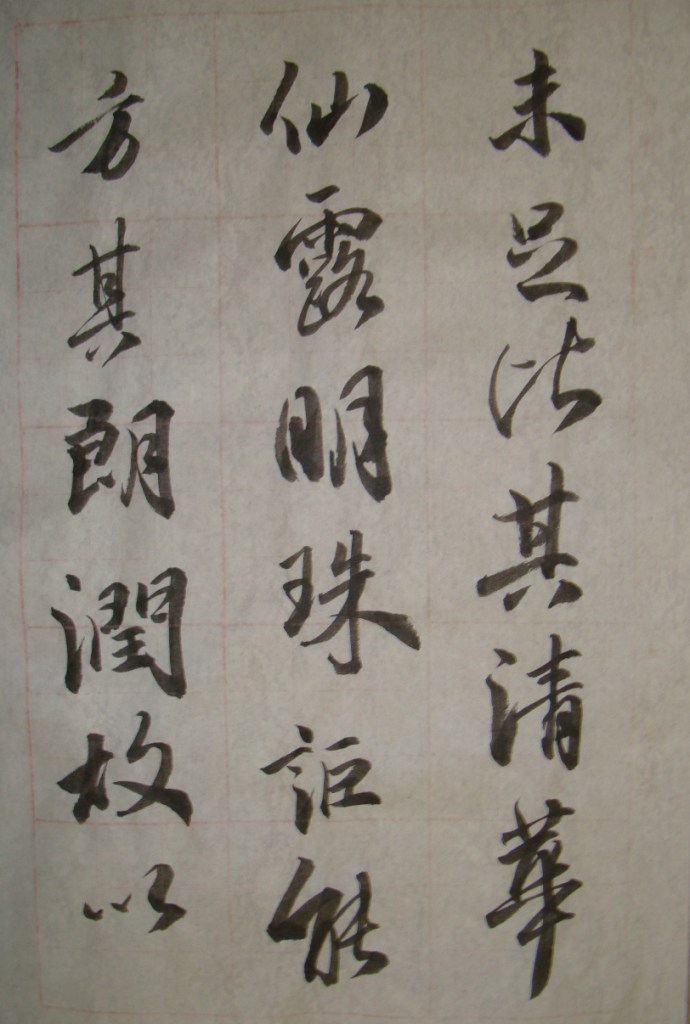 未足比其清華
仙露明珠詎能
方其朗潤故以